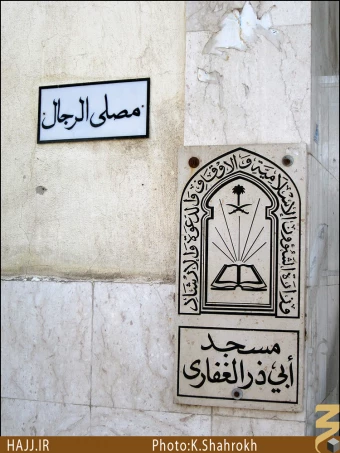 مصلى الرجال
وزارة الشؤون الإسلامية والأوقاف والدعوة والإرشاد
مسجد
أبي ذر الغفارى
HAJJ.IR
Photo:K.Shahrokh